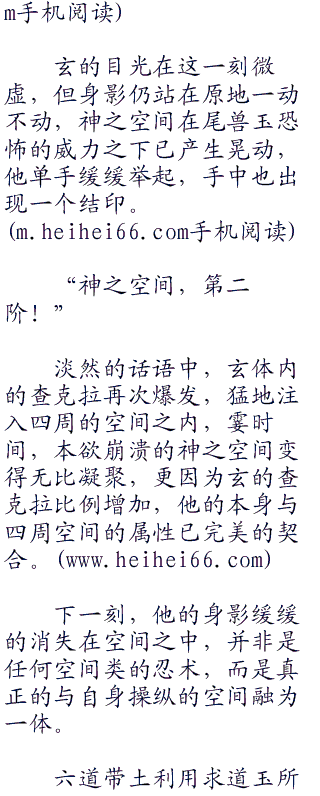 m手机阅读)
玄的目光在这一刻微
虚，但身影仍站在原地一动
不动，神之空间在尾兽玉恐
怖的威力之下已产生晃动，
他单手缓缓举起，手中也出
现一个结印。
(m.heihei66.com手机阅读)
“神之空间，第二
阶！”
淡然的话语中，玄体内
的查克拉再次爆发，猛地注
入四周的空间之内，霎时
间，本欲崩溃的神之空间变
得无比凝聚，更因为玄的查
克拉比例增加，他的本身与
四周空间的属性已完美的契
合。(www.heihei66.com)
下一刻，他的身影缓缓
的消失在空间之中，并非是
任何空间类的忍术，而是真
正的与自身操纵的空间融为
一体。
六道带土利用求道玉所